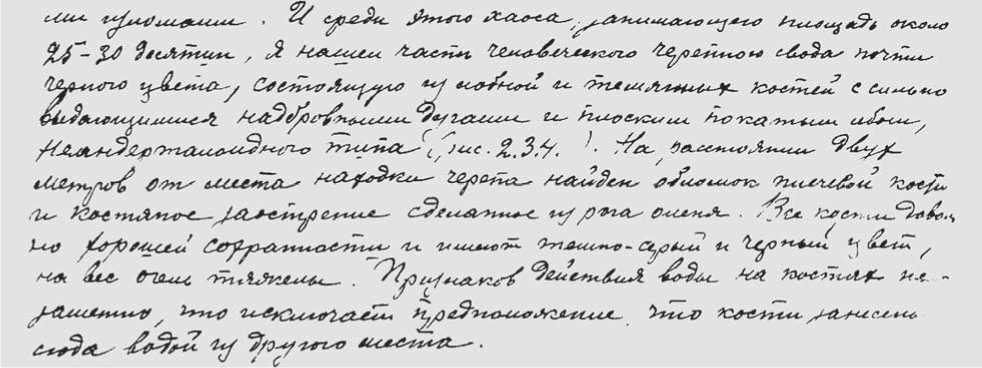 ми изломами. И среди этого хаоса, занимающего площадь около
25-30 десятин, я нашел часть человеческого черепного свода почти
черного цвета, состоящую из лобной и темянных костей с сильно
выдающимися надбровными дугами и плоским покатым лбом,
неандерталоидного типа (рис. 2.3.4. ). На расстоянии двух
метров от места находки черепа найден обломок плечевой кости
и костяное заострение сделанное из рога оленя. Все кости доволь
но хорошей сохранности и имеют темно-серый и черный цвет,
на вес очень тяжелы. Признаков действия воды на костях не-
заметно, что исключает предположение, что кости занесены
сюда водой из другого места.